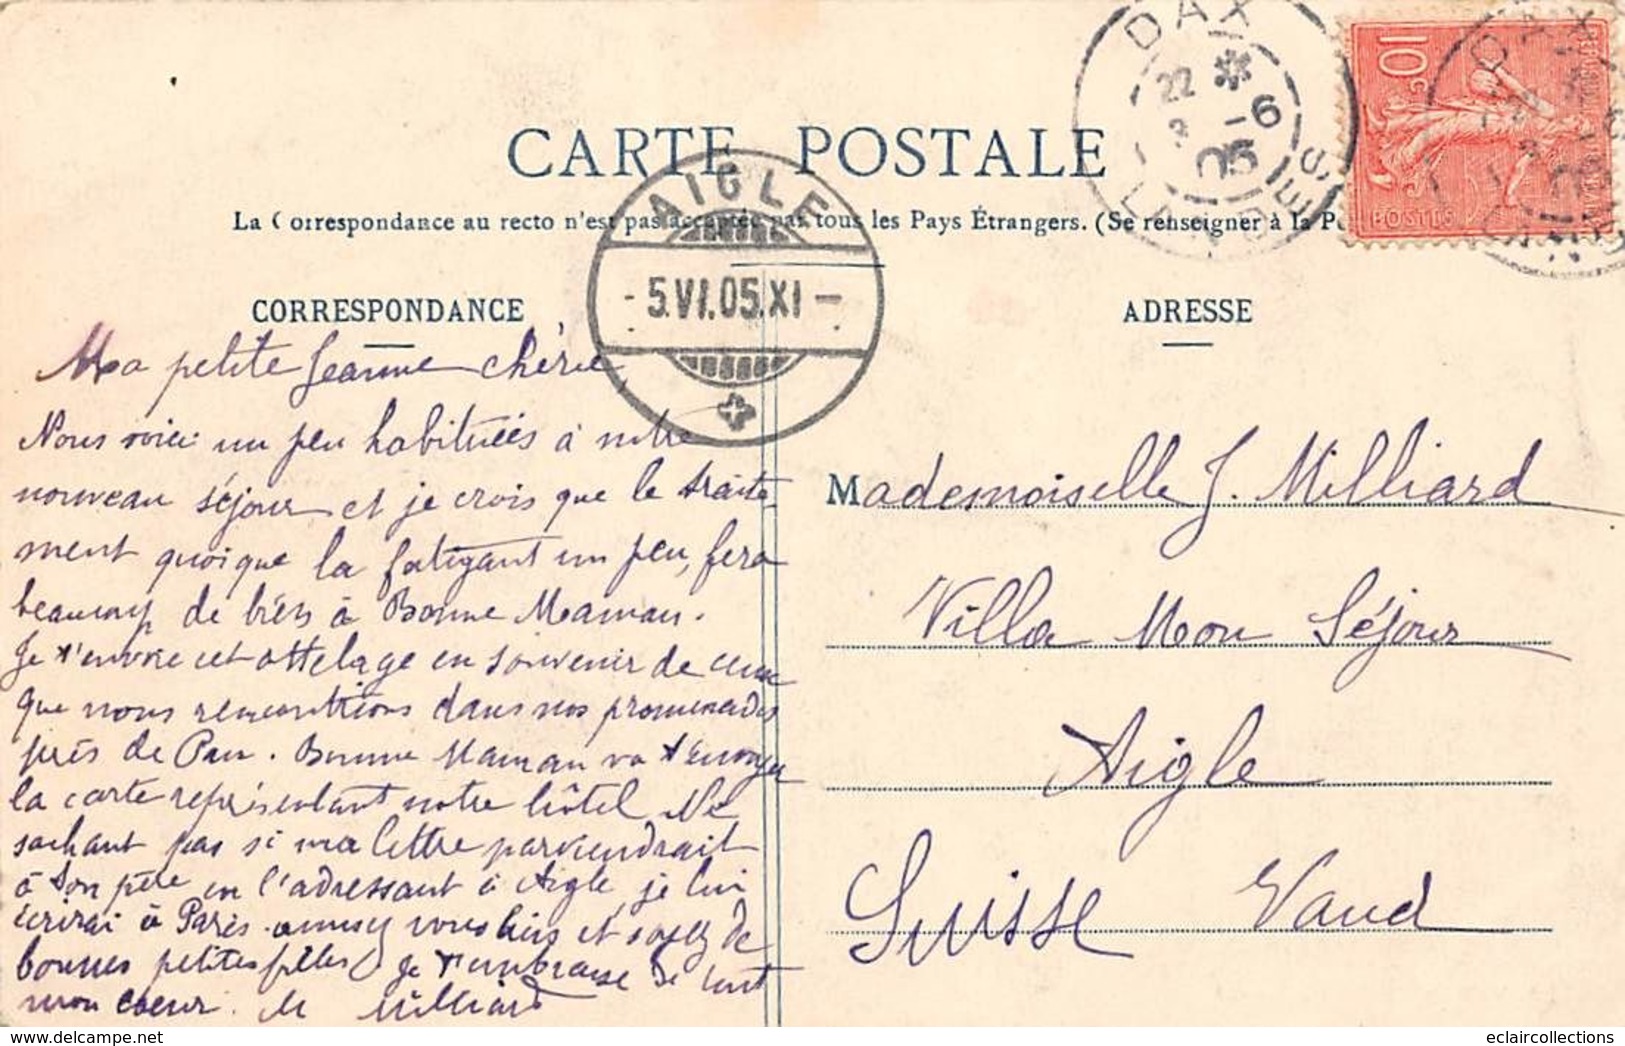 CARTE POSTALE
La Correspondance au recto n'est pas acceptée par tous les Pays Étrangers. (Se renseigner à la
CORRESPONDANCE
ADRESSE
DAX
22 *
3 -6
05
LANDES
AIGLE
- 5.VI.05.XI -
10c
POSTES
Ma petite Jeanne chérie,
Nous voici un peu habituées à notre
nouveau séjour et je crois que le traite-
ment quoique la fatigant un peu, fera
beaucoup de bien à Bonne Maman.
Je t'envoie cet attelage en souvenir de ceux
que nous rencontrions dans nos promenades
près de Pau. Bonne Maman va t'envoyer
la carte représentant notre hôtel. Ne
sachant pas si ma lettre parviendrait
à ton père en l'adressant à Aigle, je lui
écrirai à Paris. amusez vous bien et soyez de
bonnes petites filles. Je t'embrasse de tout
mon coeur. M Milliard
Mademoiselle J. Milliard
Villa Mon Séjour
Aigle
Suisse Vaud
eclaircollections